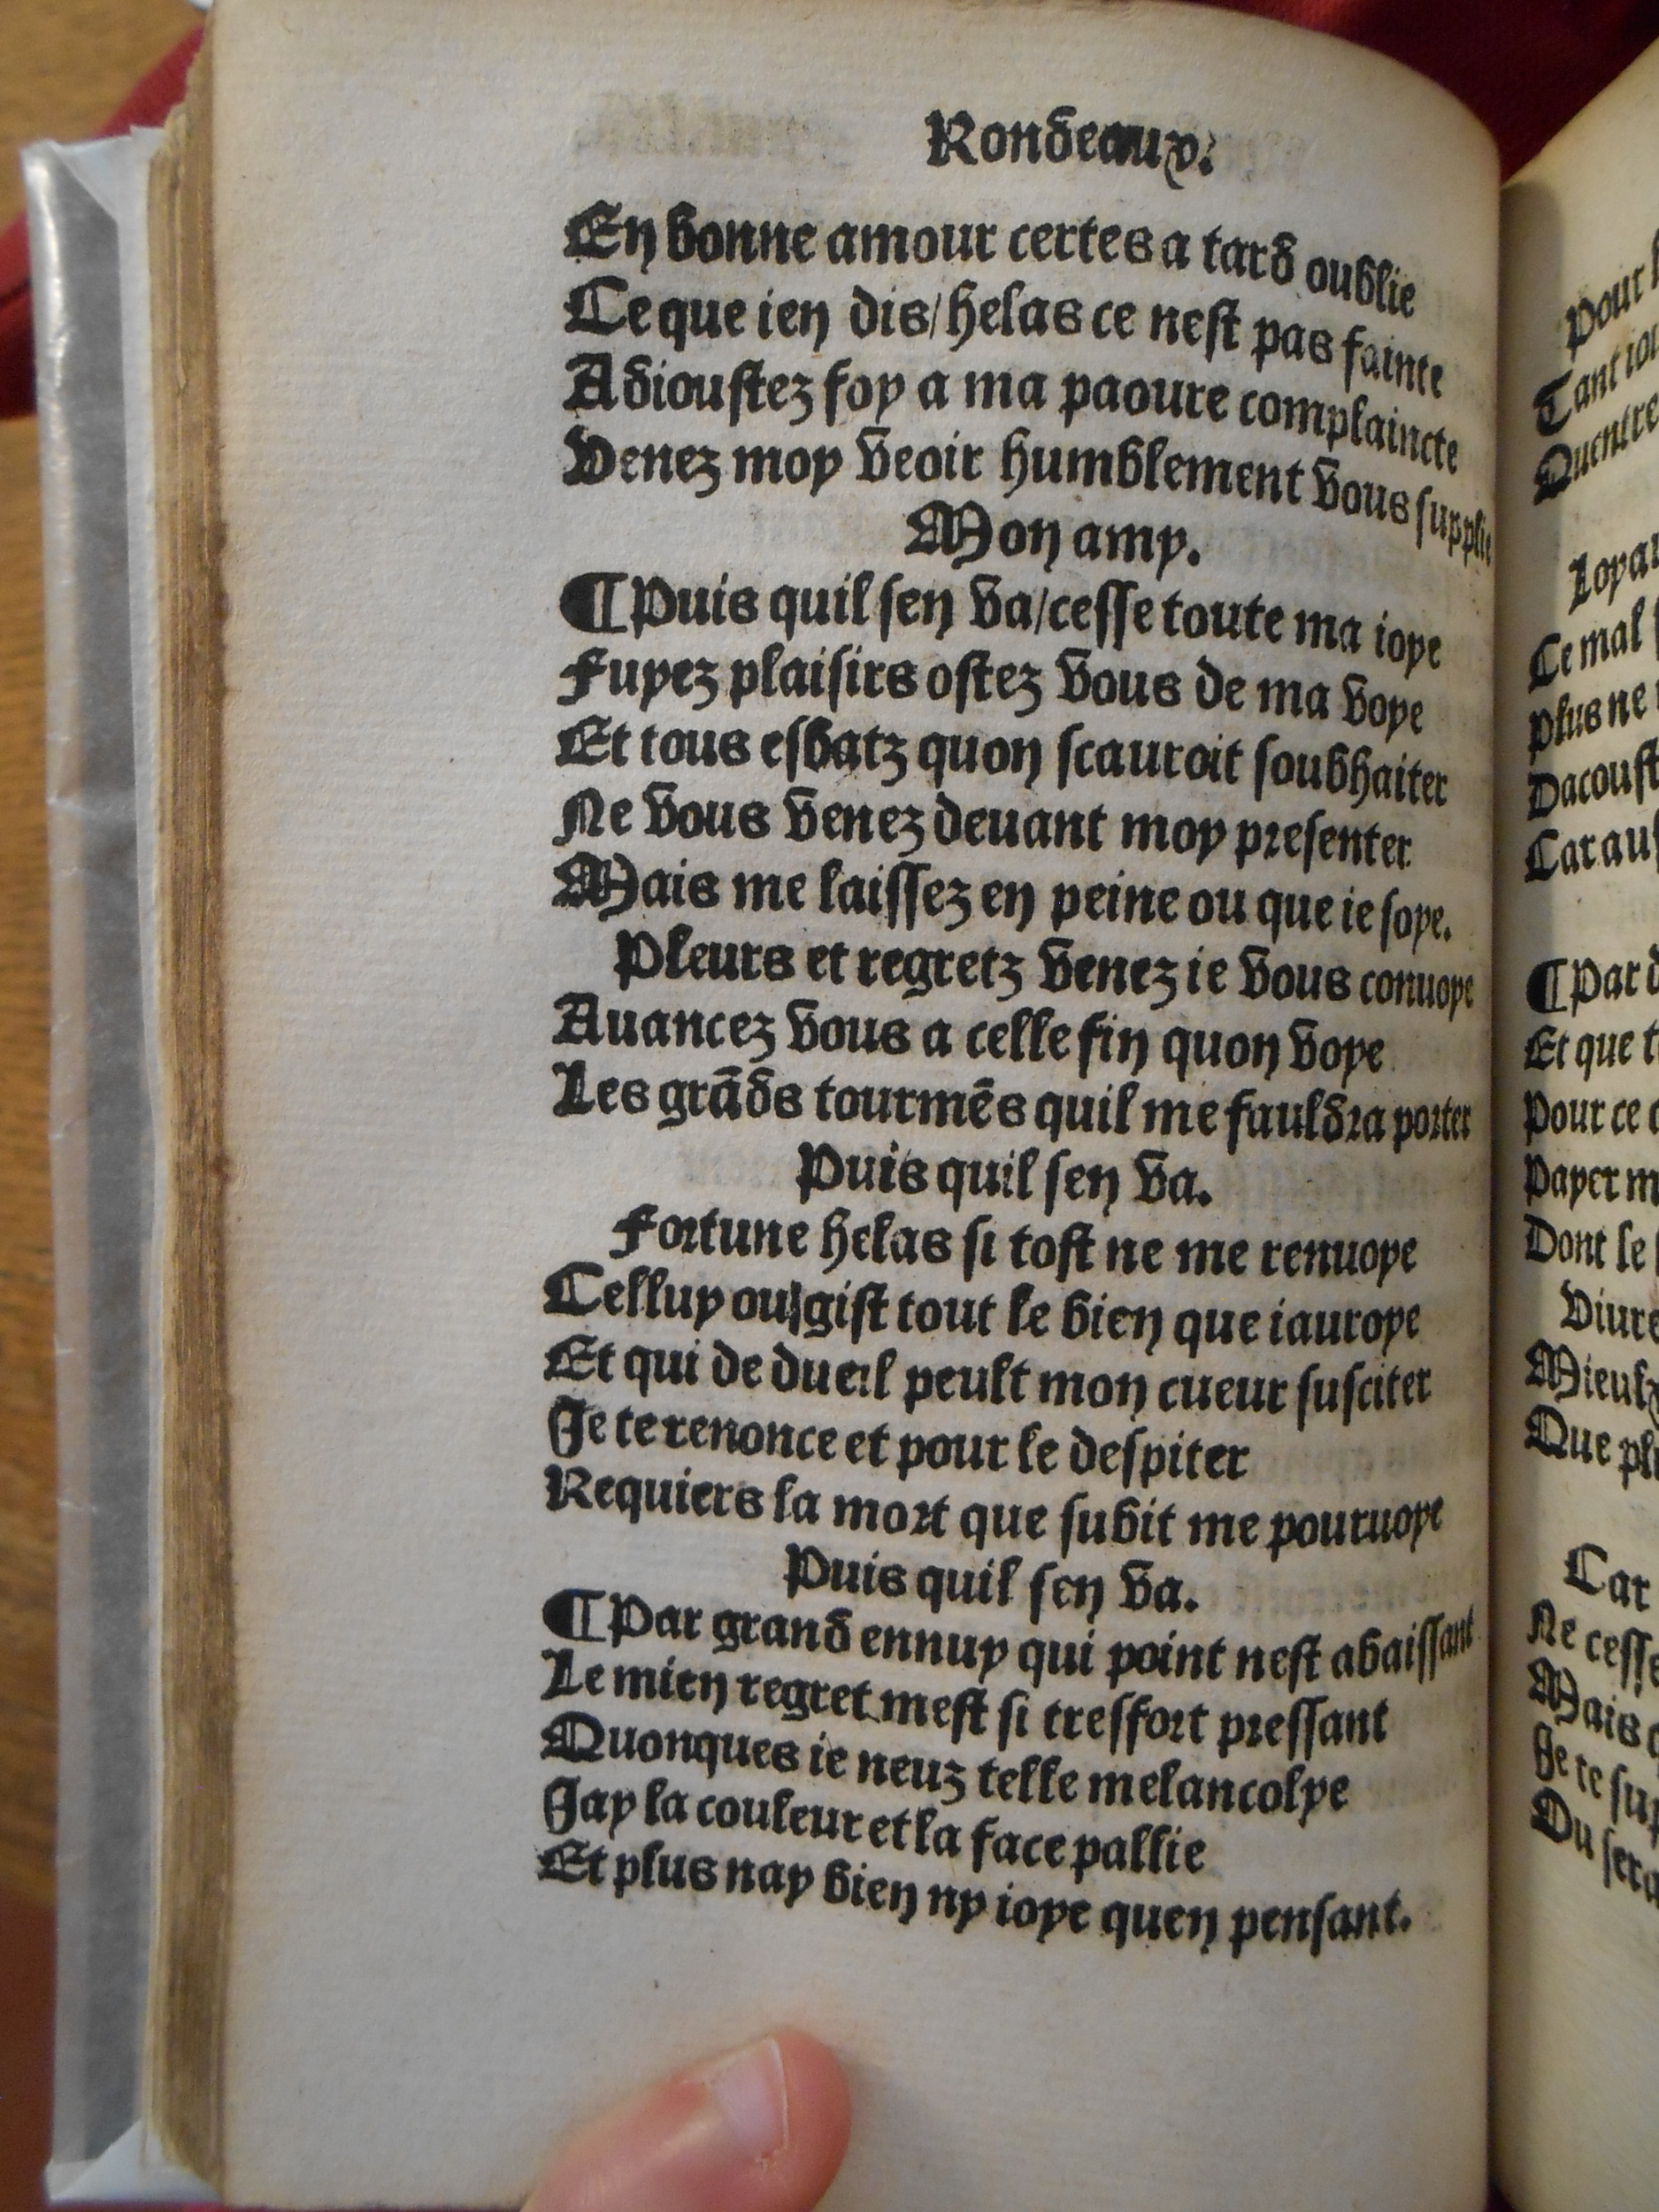 Rondeaux.
En bonne amour certes a tard oublie
Ce que ien dis/helas ce nest pas fainte
Adioustez foy a ma paoure complaincte
Venez moy veoir humblement vous supplie
Mon amy.
¶Puis quil sen va/cesse toute ma ioye
Fuyez plaisirs ostez vous de ma voye
Et tous esbatz quon scauroit soubhaiter
Ne vous venez deuant moy presenter
Mais me laissez en peine ou que ie soye.
Pleurs et regretz venez ie vous conuoye
Auancez vous a celle fin quon voye
Les grãds tourmẽs quil me fauldra porter
Puis quil sen va.
Fortune helas si tost ne me renuoye
Celluy ou gist tout le bien que iauroye
Et qui de dueil peult mon cueur susciter
Je te renonce et pour le despiter
Requiers la mort que subit me pouruoye
Puis quil sen va.
¶Par grand ennuy qui point nest abaissant
Le mien regret mest si tresfort pressant
Quonques ie neuz telle melancolye
Jay la couleur et la face pallie
Et plus nay bien ny ioye quen pensant.
Pour
Tant
Quentre
Ce mal
Plus ne
Car
¶Par
Et que
Pour ce
Payer
Dont le
Viure
Que
Car
Ne cesse
Mais
Je te
Ou sera